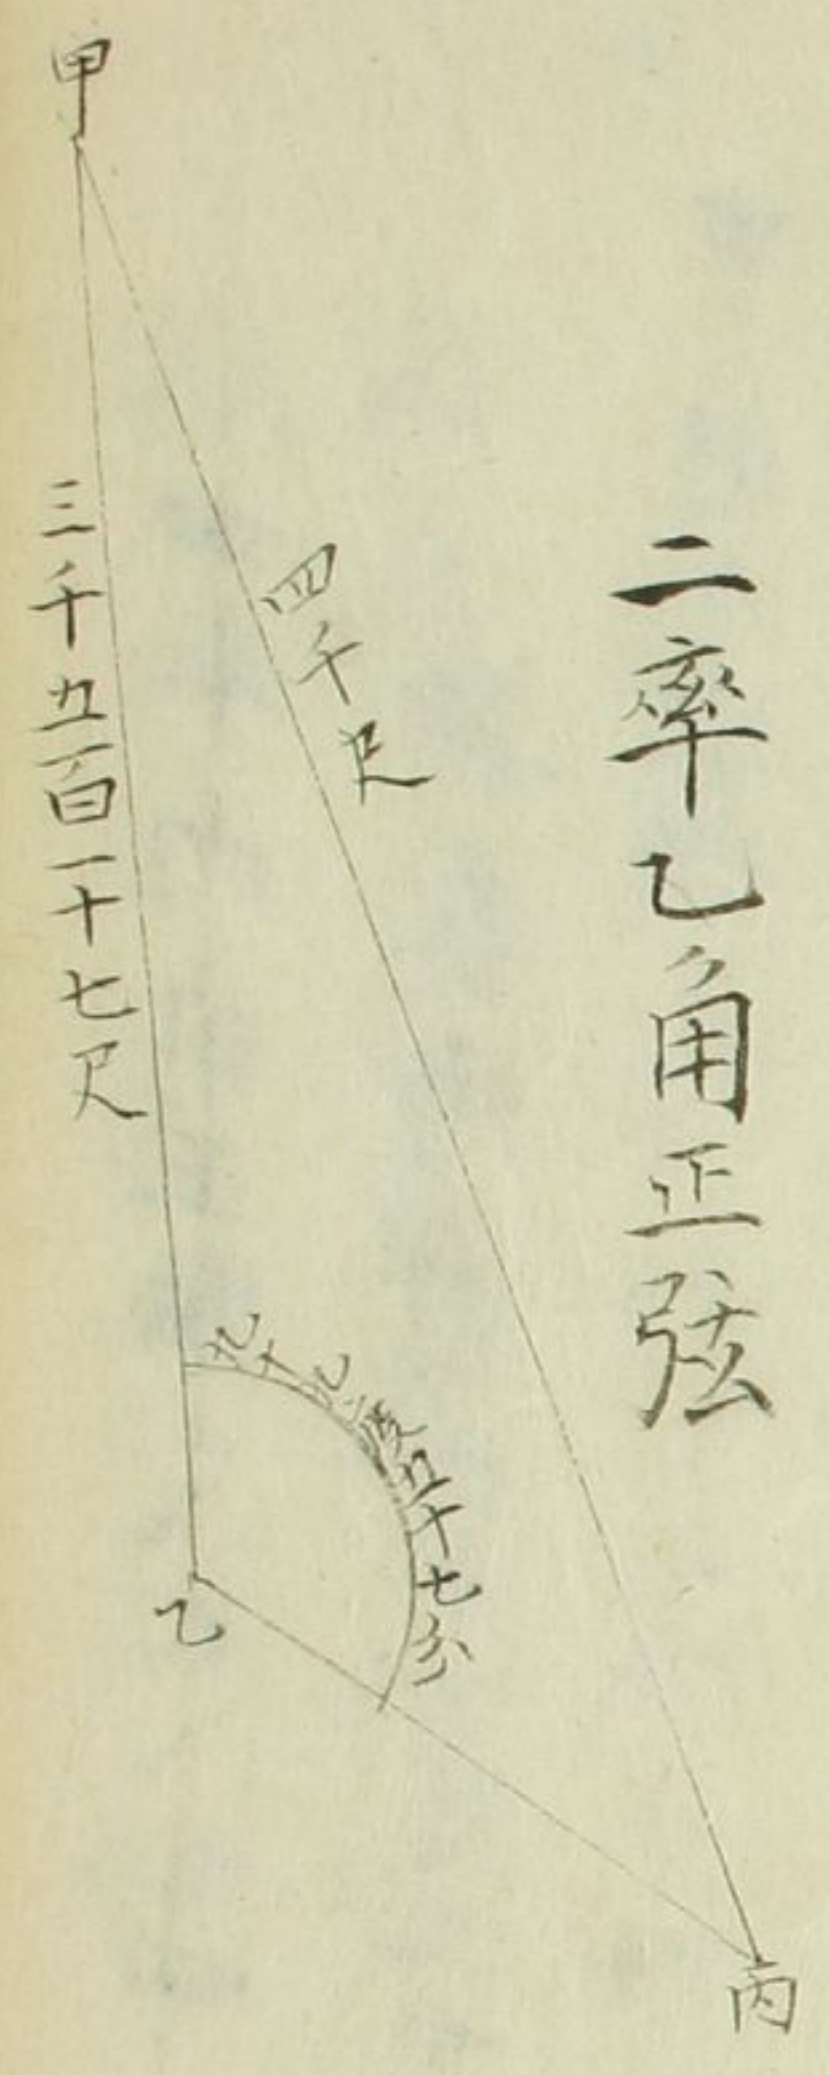 二率乙角正弦
甲
四千尺
三千五百一十七尺
九十九度五十七分
乙
丙